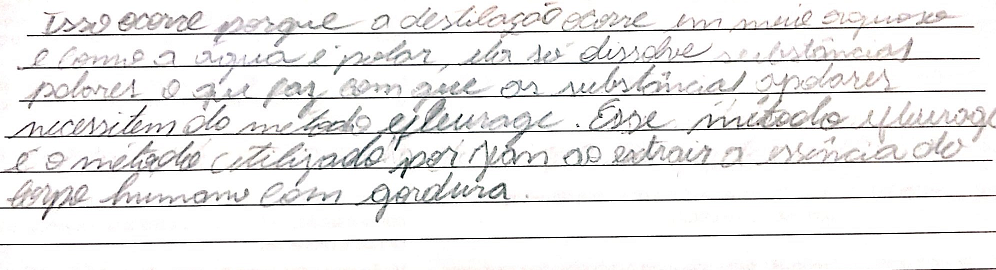 Isso ocorre porque a destilação ocorre em meio aquoso
e como a água é polar, ela só dissolve substâncias
polares o que faz com que as substâncias apolares
necessitem do método efleurage. Esse método efleurage
é o método utilizado por Jean ao extrair a essência do
corpo humano com gordura.